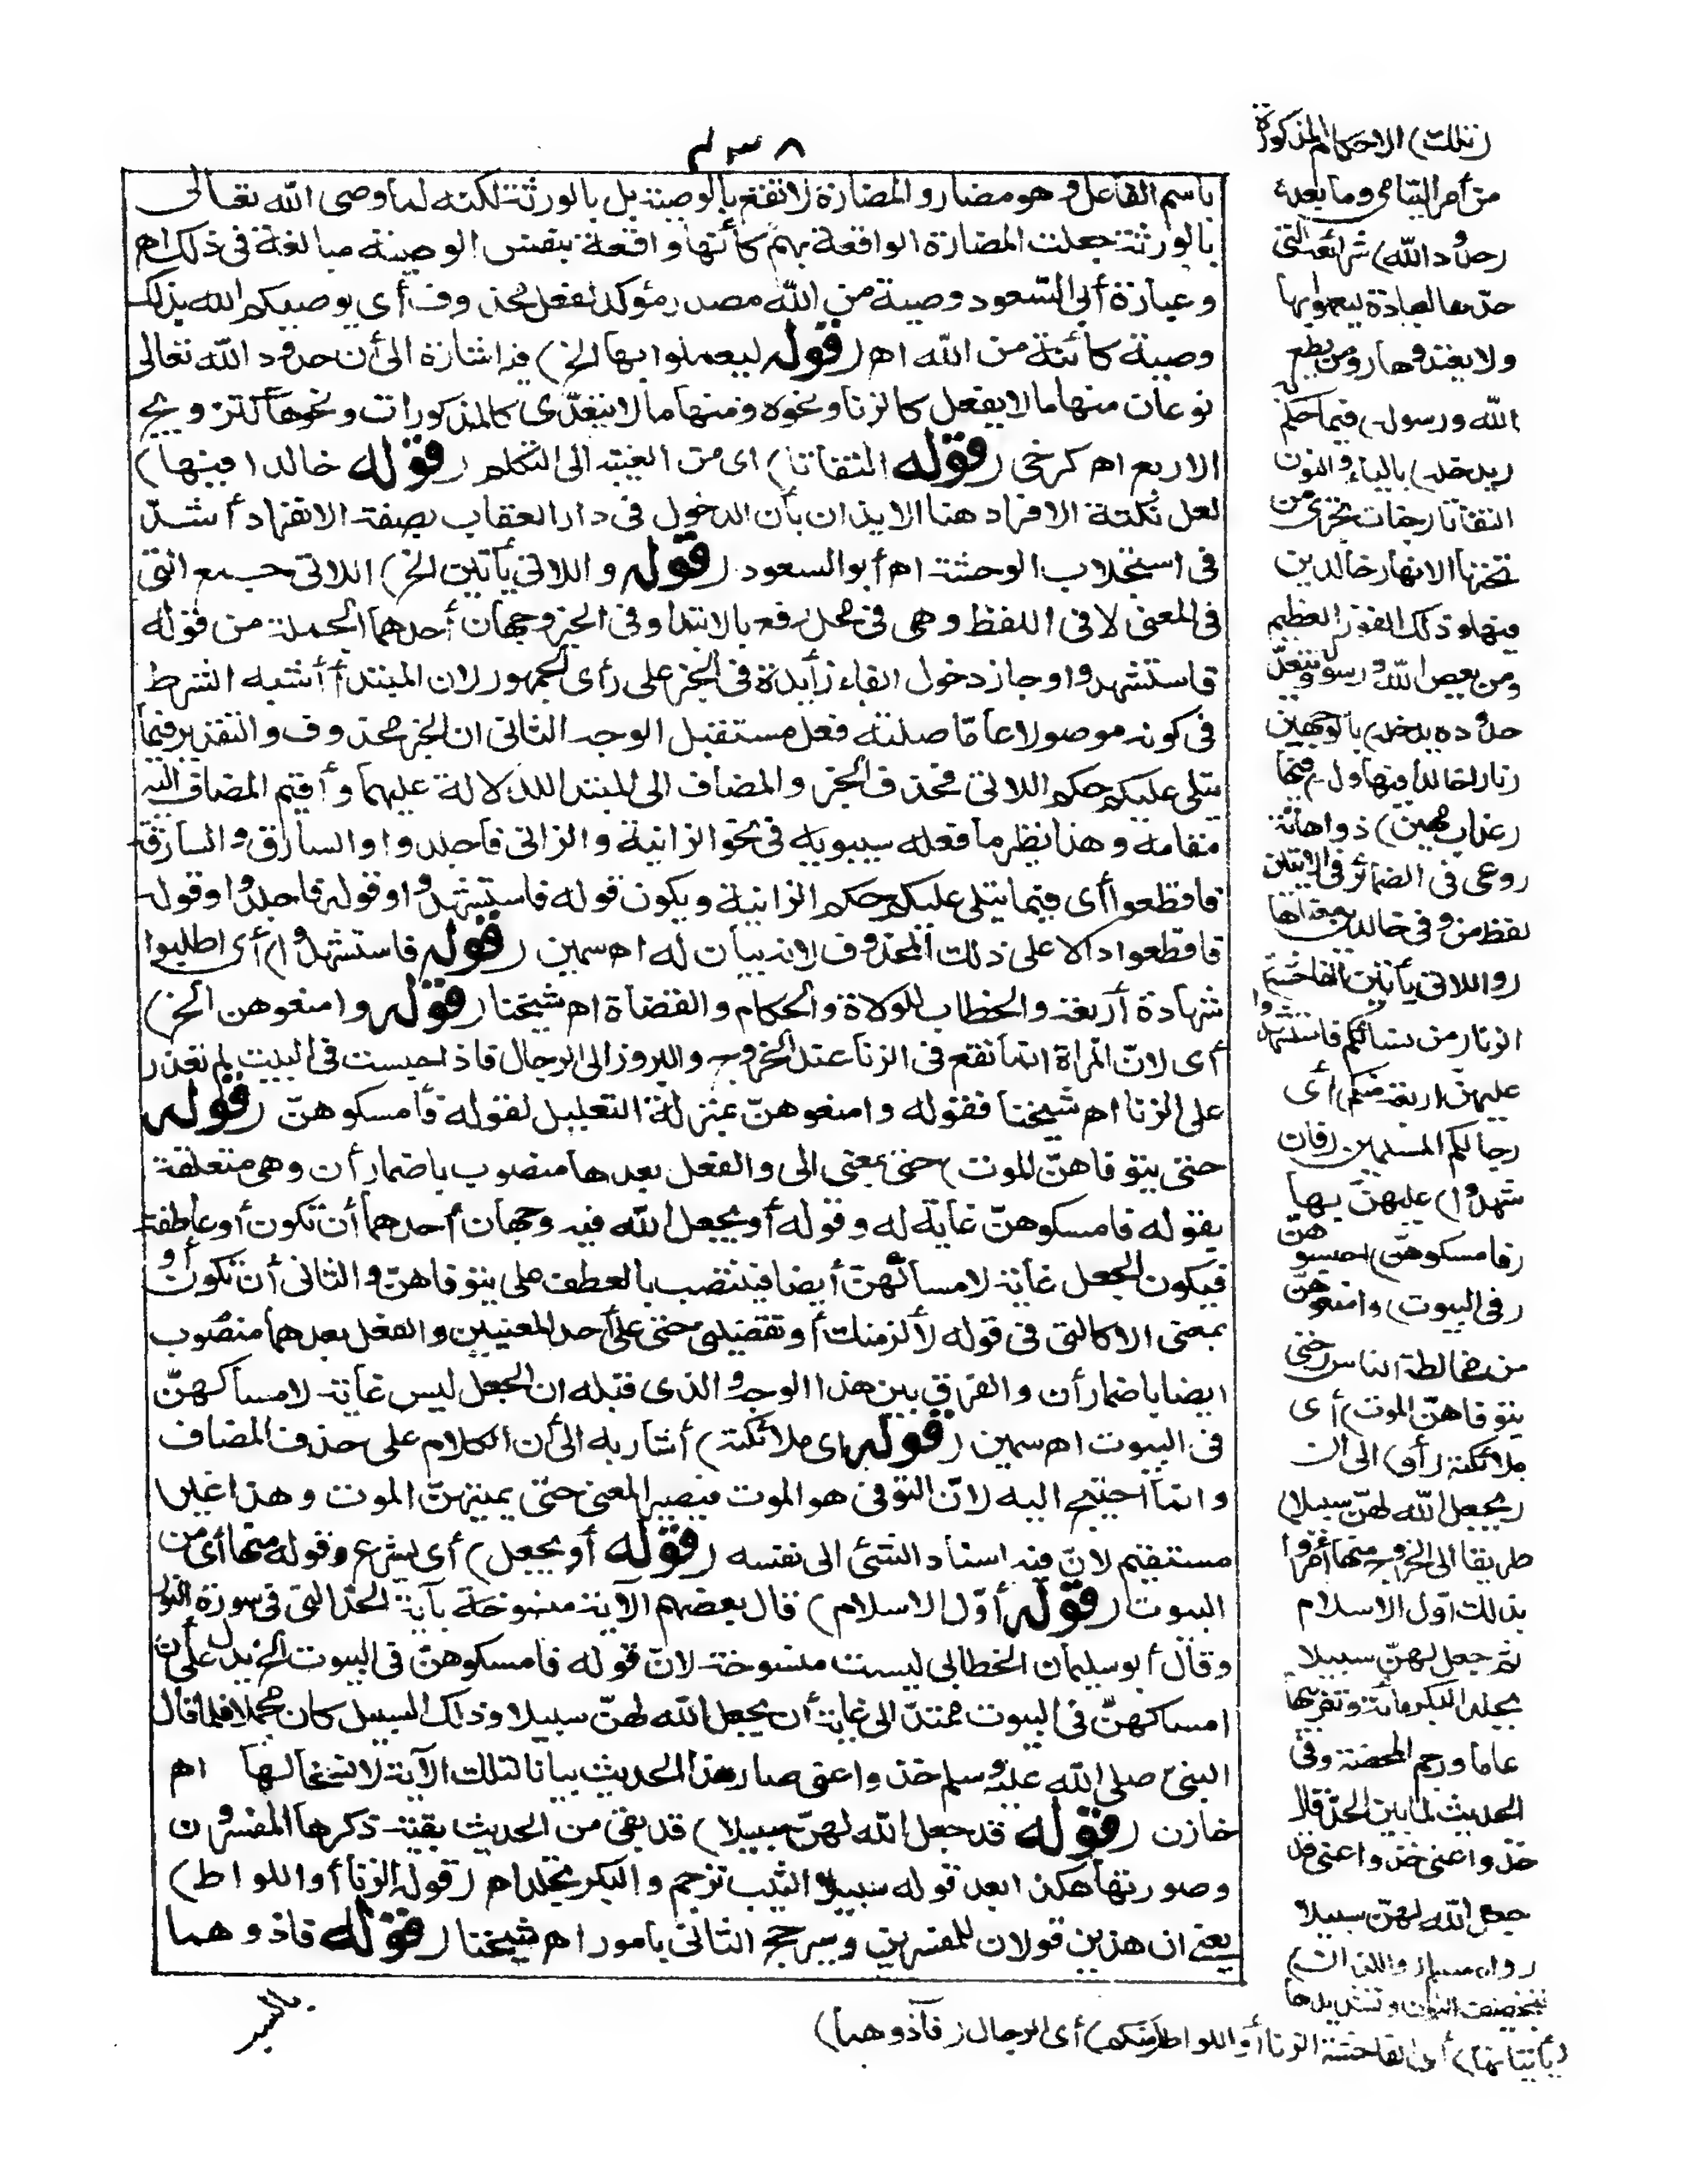 ٤٣٨
باسم الفاعل و هو مضار والمضارة لا تقع بالوصية بل بالورثة لكنه لما وصى الله تعالى
بالورثة جعلت المضارة الواقعة بهم كأنها واقعة بنفس الوصية مبالغة فى ذلك اھ
وعبارة أبى السعود وصية من الله مصدر مؤكد لفعل محذوف أى يوصيكم الله بذلك
وصية كائنة من الله اھ (قوله ليعملوا بها الخ) فيه اشارة الى أن حدود الله تعالى
نوعان منها ما لا يفعل كالزنا ونحوه ومنها ما لا يتعدى كالمذكورات ونحوها كتزويج
الاربع اھ كرخى (قوله التفاتا) اى من الغيبة الى التكلم (قوله خالدا فيها)
لعل نكتة الافراد هنا الايذان بأن الدخول فى دار العقاب بصفة الانفراد أشد
فى استجلاب الوحشة اھ أبو السعود (قوله واللاتى يأتين الخ) اللاتى جمع التى
فى المعنى لا فى اللفظ وهى فى محل رفع بالابتدا وفى الخبر وجهان أحدهما الجملة من قوله
فاستشهدوا وجاز دخول الفاء زائدة فى الخبر على رأى الجمهور لان المبتدأ أشبه الشرط
فى كونه موصولا عامّا صلته فعل مستقبل الوجه الثانى ان الخبر محذوف والتقدير فيما
يتلى عليكم حكم اللاتى فحذف الخبر والمضاف الى المبتدا للدلالة عليهما وأقيم المضاف اليه
مقامه وهذا نظير ما فعله سيبويه فى نحو الزانية والزانى فاجلدوا والسارق والسارقة
فاقطعوا أى فيما يتلى عليكم حكم الزانية ويكون قوله فاستشهدوا وقوله فاجلدوا وقوله
فاقطعوا دالا على ذلك المحذوف لانه بيان له اھ سمين (قوله فاستشهدوا) أى اطلبوا
شهادة أربعة والخطاب للولاة والحكام والقضاة اھ شيخنا (قوله وامنعوهن الخ)
أى لانّ المراة انما تقع فى الزنا عند الخروج والبروز الى الرجال فاذا حبست فى البيت لم تقدر
على الزنا اھ شيخنا فقوله وامنعوهنّ بمنزلة التعليل لقوله فأمسكوهنّ (قوله
حتى يتوفاهنّ الموت) حتى بمعنى الى والفعل بعدها منصوب باضمار أن وهى متعلقة
بقوله فامسكوهنّ غاية له وقوله أو يجعل الله فيه وجهان أحدهما أن تكون أو عاطفة
فيكون الجعل غاية لامساكهنّ أيضا فينتصب بالعطف على يتوفاهنّ والثانى أن تكون أو
بمعنى الا كالتى فى قوله لألزمنك أو تقضينى حقى على أحد المعنيين والفعل بعدها منصوب
ايضا باضمار أن والفرق بين هذا الوجه والذى قبله ان الجعل ليس غاية لامساكهنّ
فى البيوت اھ سمين (قوله اى ملائكته) أشار به الى أن الكلام على حذف المضاف
وانما احتيج اليه لانّ التوفى هو الموت فيصير المعنى حتى يميتهنّ الموت وهذا غير
مستقيم لانّ فيه اسناد الشئ الى نفسه (قوله أو يجعل) أى يشرع وقوله منها أى من
البيوت (قوله أوّل الاسلام) قال بعضهم الآية منسوخة بآية الحد التى فى سورة النور
وقال أبو سليمان الخطابى ليست منسوخة لانّ قوله فامسكوهنّ فى البيوت الخ يدل على أن
امساكهنّ فى البيوت ممتدّ الى غاية أن يجعل الله لهنّ سبيلا وذلك السبيل كان مجملا فلما قال
النبىّ صلى الله عليه وسلم خذوا عنى صار هذا الحديث بيانا لتلك الآية لا نسخا لها اھ
خازن (قوله قد جعل الله لهنّ سبيلا) قد بقى من الحديث بقية ذكرها المفسرون
وصورتها هكذا بعد قوله سبيلا الثيب ترجم والبكر تجلد اھ (قوله الزنا أو اللواط)
يعنى ان هذين قولان للمفسرين وسيرجح الثانى بامور اھ شيخنا (قوله فاذوهما
بالسب
(تلك) الاحكام المذكورة
من أمر اليتامى وما بعده
(حدود الله) شرائعه التى
حدّها لعباده ليعملوا بها
ولا يعتدوها (ومن يطع
الله ورسوله) فيما حكم به
(يدخله) بالياء والنون
التفاتا (جنات تجرى من
تحتها الانهار خالدين
فيها وذلك الفوز العظيم
ومن يعص الله ورسوله ويتعدّ
حدوده يدخله) بالوجهين
(نارا خالدا فيها وله) فيها
(عذاب مهين) ذو اهانة
روعى فى الضمائر فى الآيتين
لفظ من وفى خالدين معناها
(واللاتى يأتين الفاحشة)
الزنا (من نسائكم فاستشهدوا
عليهنّ اربعة منكم) أى
رجالكم المسلمين (فان
شهدوا) عليهنّ بها
(فامسكوهنّ) احبسوهنّ
(فى البيوت) وامنعوهنّ
من مخالطة الناس (حتى
يتوفاهنّ الموت) أى
ملائكته (أو) الى ان
(يجعل الله لهنّ سبيلا)
طريقا الى الخروج منها أمروا
بذلك اوّل الاسلام
ثم جعل لهنّ سبيلا
بجلد البكر مائة وتغريبها
عاما ورجم المحصنة وفى
الحديث لما بين الحدّ قال
خذوا عنى خذوا عنى قد
جعل الله لهنّ سبيلا
رواه مسلم (واللذان)
بتخفيف النون وتشديدها
(يأتيانها) أى الفاحشة الزنا أو اللواط (منكم) أى الرجال (فآذوهما)